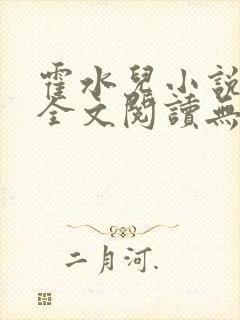 霍水兒小說
全文閱讀無
二月河.